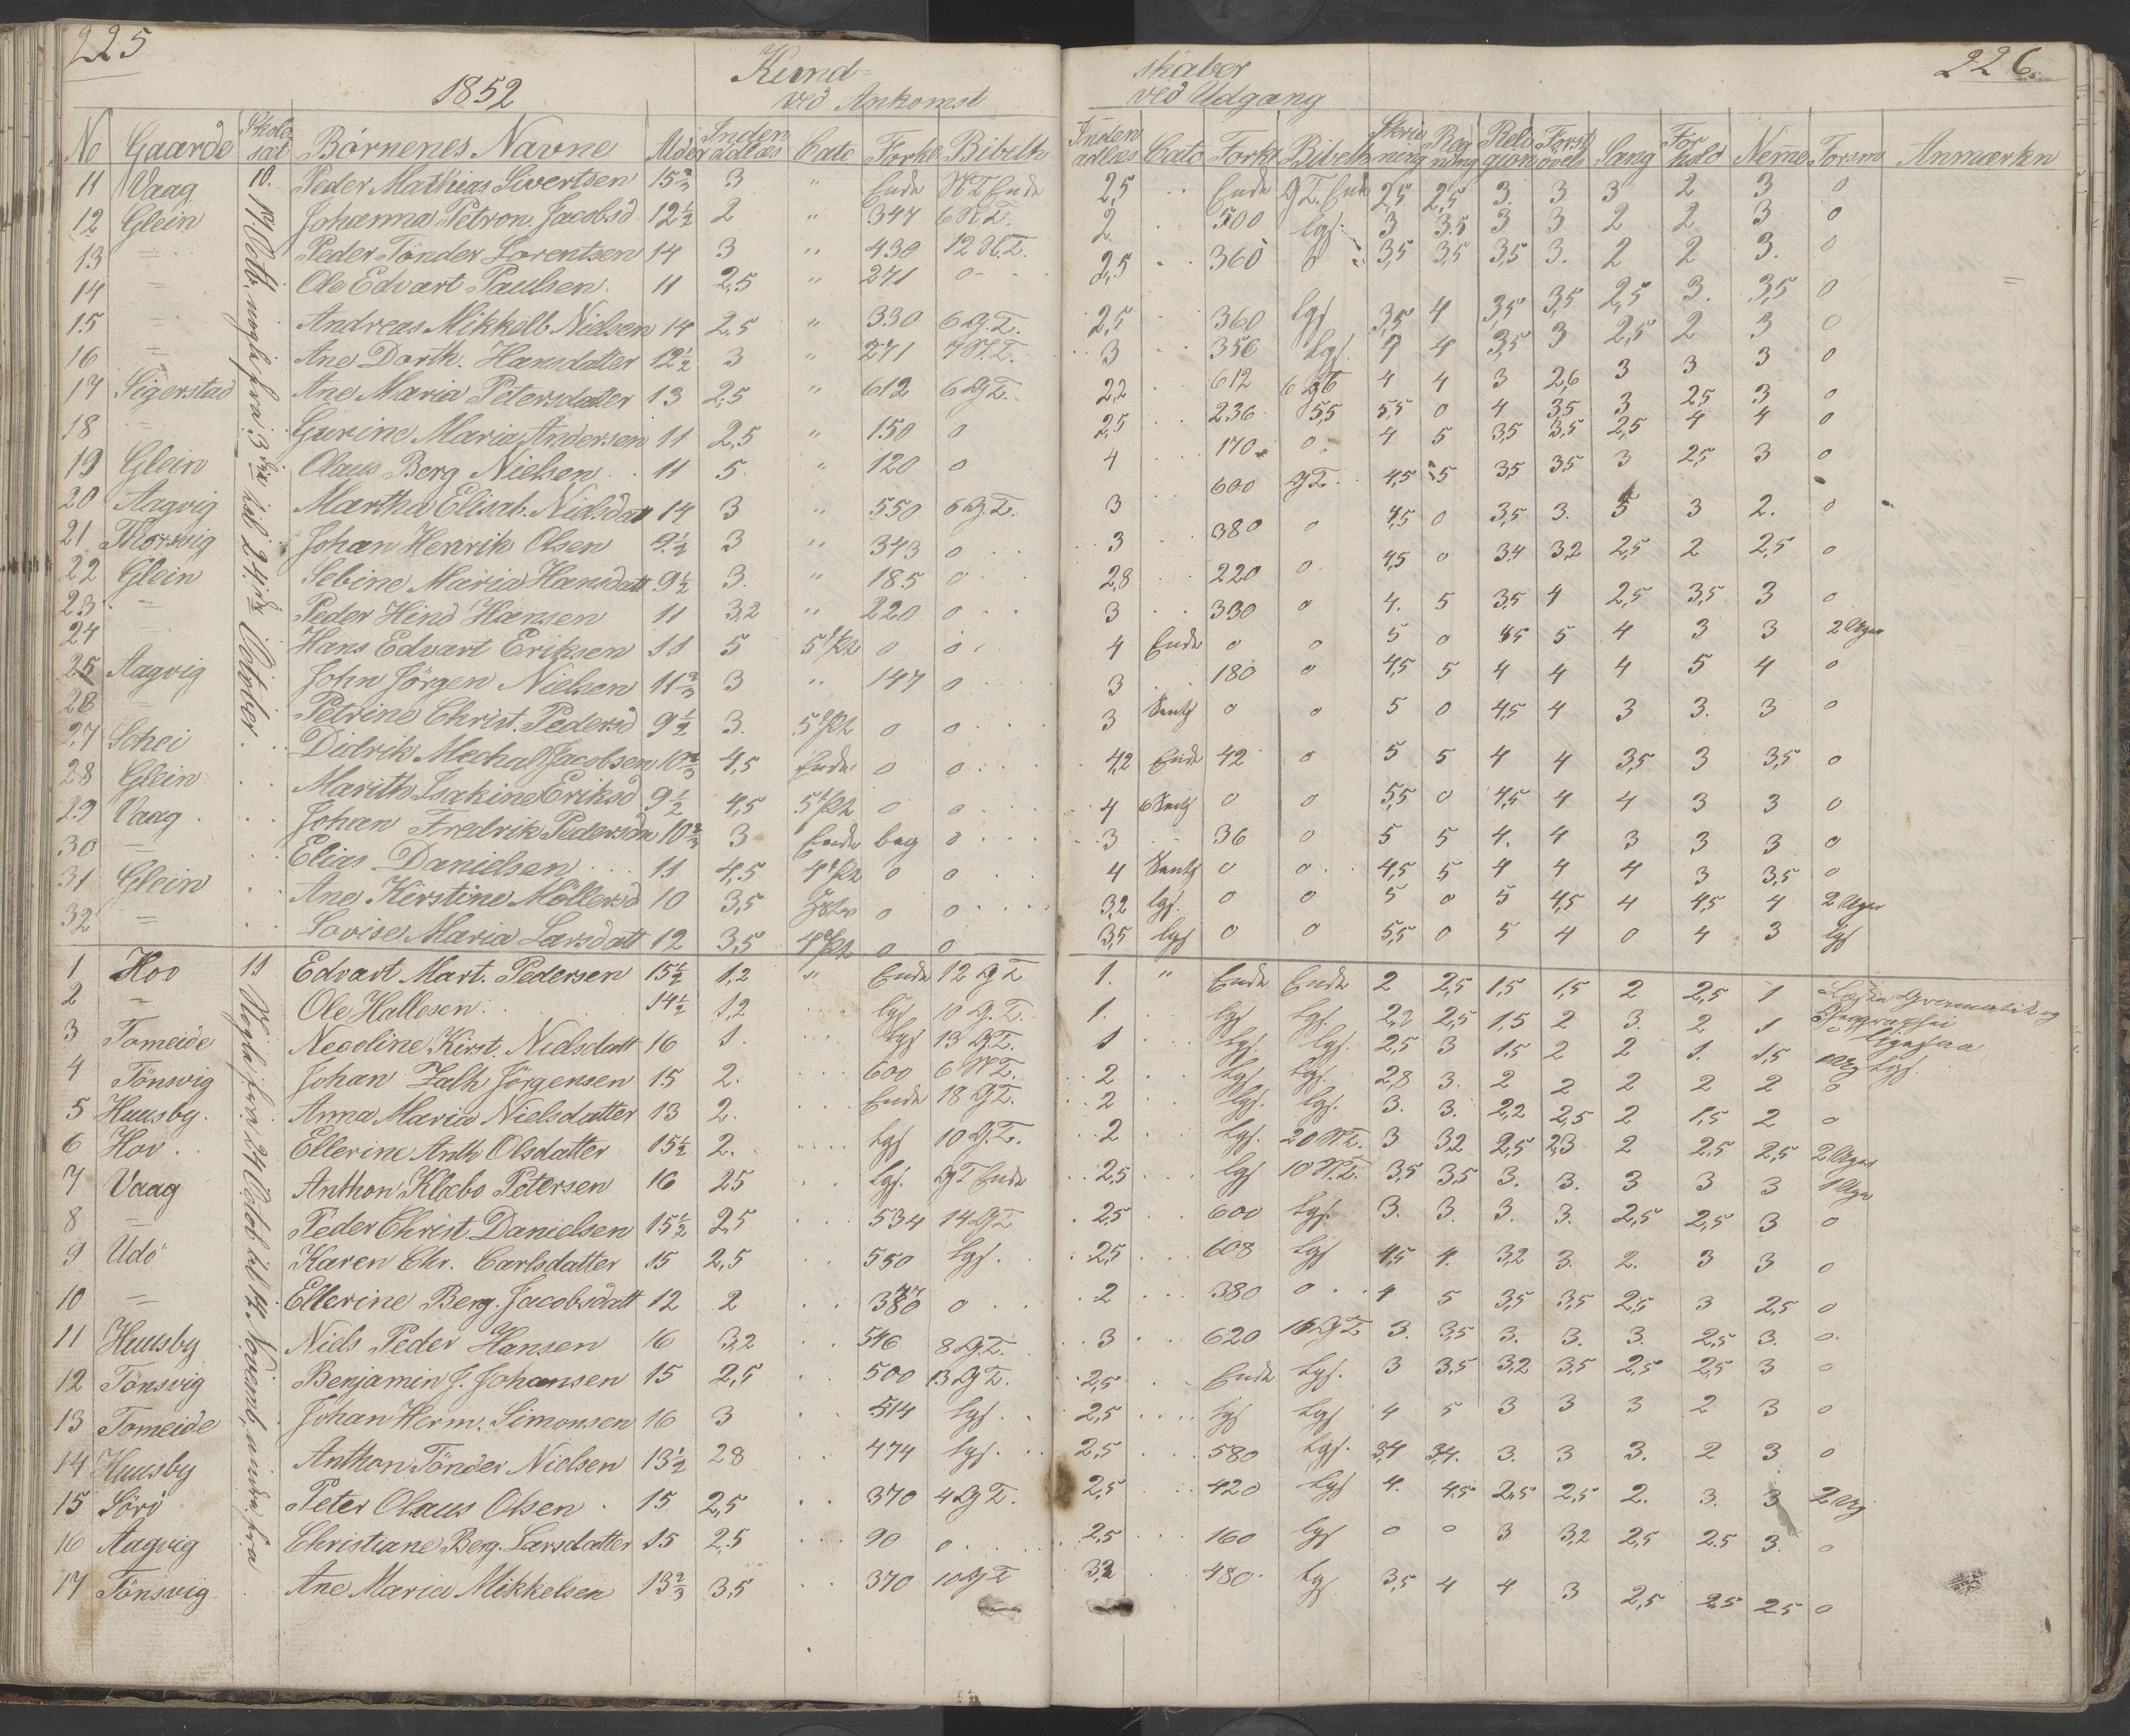 225
226.
1852
Kund=
skaber
ved Ankomst
ved Udgang
No Gaarde Skole sæt Börnenes Navne Alder Inden adlæs Catc Forkl Bibelh Inden adlæs Catc Forkl Bibelh Skriv ning Reg ning Reli gion Forst övels Sang For hold Nem̄e Forsm Anmærkn
11 Vaag 10. Peder Mathias Sivertsen 15⅔ 3 " Ende N.T. Ende 2,5 Ende G.T. Ende 2,5 2,5 3. 3 3 2 3 0
12 Glein Johanna Petron. Jacobsd 12½ 2 " 347 6 N.T. 2. 500 lgs. 3 3.5 3 3 2 2 3 0
13 = Peder Tönder Lorentsen 14 3 " 430 12 N.T. 2,5 360 0 3,5 3,5 3,5 3. 2 2 3. 0
14 = Ole Edvart Paulsen. 11 2,5 " 271 0 2,5 360 lgs 3,5 4 3,5 3,5 2,5 3. 3,5 0
15 = Andreas Mikkelb Nielsen 14 2,5 " 330 6 G.T. 3 356 lgs. 4 4 3,5 3 2,5 2 3 0
16 = Ane Dorth. Hansdatter 12½ 3 " 271 7 N.T. 2,2 612 6 GT 4 4 3 2,6 3 3 3 0
17 Sigerstad Ane Maria Petersdatter 13 2,5 " 612 6 G.T. 2,5 236 0 5,5 5,5 0 4 3,5 3 2,5 3 0
18 = Gurine Maria Andersen 11 2,5 " 150 0 4 170 0 4 5 3,5 3,5 2,5 4 4 0
19 Glein Olaus Berg Nielsen 11 5 " 120 0 3 600 G.T. 4,5 5 3,5 3,5 3 2,5 3 0
20 Aagvig Martha Elisab. Nielsdatt 14 3 " 550 6 G.T. 3 380 0 4,5 0 3,5 3. 5 3 2. 0
21 Thorsvig Johan Henrik Olsen 9½ 3 " 343 0 2,8 220 0 4,5 0 3.4 3,2 2,5 2 2,5 0
22 Glein Sebine Maria Hansdatt 9½ 3. " 185 0 3 330 0 4. 5 3,5 4 2,5 3,5 3 0
23 = Peder Hind Hansen 11 3,2 " 220 0 4 Ende 0 0 5 0 4,5 5 4 3 3 2 Uger
24 Hans Edvart Eriksen 11 5 0 0 3 180 0 4,5 5 4 4 4 5 4 0
25 Aagvig John Jörgen Nielsen 11⅔ 3 " 147 0 3 0 0 5 0 4,5 4 3 3. 3 0
26 = Petrine Christ. Pedersd 9½ 3. 0 0 4,2 Ende 42 0 5 5 4 4 3,5 3 3,5 0
27 Schei Didrik Mechal Jacobsen 10⅔ 4,5 Ende 0 0 4 0 0 5,5 0 4,5 4 4 3 3 0
28 Glein Marith Isakine Eriksd 9½ 4,5 0 0 3 36 0 5 5 4. 4 3 3 3 0
29 Vaag Johan Fredrik Pedersen 10⅔ 3 Ende beg 0 4 0 0 4,5 5 4 4 4 3 3,5 0
30 = Elias Danielsen 11 4,5 0 0 3,2 lgs. 0 0 5 0 5 4,5 4 4,5 4 2 Uger
31 Glein Ane Kirstine Möllersd 10 3,5 0 0 3,5 lgs 0 0 5,5 0 5 4 0 4 3 lgs
32 = Lovise Maria Larsdatt 12 3,5 0 0
1 Hov 11 Edvart Mart. Pedersen 15½ 1,2 " Ende 12 G.T 1. " Ende Ende 2 2,5 1,5 1,5 2 2,5 1 Gramatik og Geographi
2 = Ole Hallesen 14½ 1,2 lgs 10 G.T. 1. lgs lgs. 2,2 2,5 1,5 2 3. 2 1 0 ligesaa
3 Tomeide Neoline Kirst. Nielsdatt 16 1. lgs 13 G.T. 1 lgs. lgs. 2,5 3 1.5 2 2 1. 1,5 lgs.
4 Tönsvig Johan Zalh Jörgensen 15 2. 600 6 N.T. 2 lgs. lgs. 2,8 3. 2 2 2 2 2 0
5 Huusby. Anna Maria Nielsdatter 13 2. Ende 18 G.T. 2 lgs. lgs. 3. 3. 2,2 2,5 2 1,5 2 0
6 Hov Ellerine Anth Olsdatter 15½ 2. lgs 10 G.T. 2 lgs. 20 N.T. 3 3,2 2,5 2,3 2 2,5 2,5 2 Uger
7 Vaag Anthon Klæbo Petersen 16 2,5 lgs. G.T Ende 2,5 lgs 10 N.T. 3,5 3,5 3. 3. 3 3 3 1 Uge
8 = Peder Christ. Danielsen 15½ 2,5 534 14 G.T 2,5 600 lgs. 3. 3. 3. 3. 2,5 2,5 3 0
9 Udö Karen Chr. Carlsdatter 15 2,5 550 lgs. 2,5 608 lgs 4,5 4. 3,2 3. 2. 3 3 0
10 = Ellerine Berg. Jacobsdatt 12 2 380 0 2 380 0 4 5 3,5 3,5 2,5 3 2,5 0
11 Huusby Niels Peder Hansen 16 3,2 546 8 G.T. 3 620 16 G.T. 3. 3,5 3. 3. 3. 2,5 3. 0
12 Tönsvig Benjamin J. Johansen 15 2,5 500 13 G.T. 2,5 Ende lgs. 3 3,5 3,2 3,5 2,5 2,5 3 0
13 Tomeide Johan Herm. Simonsen 16 3 514 lgs. 2,5 lgs lgs 4 5 3 3 3 2 3 0
14 Huusby Anthon Tönder Nielsen 13½ 2,8 474 lgs. 2,5 580 lgs. 3,4 3,4. 3. 3 3. 2 3 0
15 Sörö Peter Olaus Olsen 15 2,5 370 4 G.T. 2,5 420 lgs 4. 4.5 2,5 2,5 2. 3. 3 2 Ug
16 Aagvig Christiane Berg. Larsdatter 15 2,5 90 0 2,5 160 lgs 0 0 3 3,2 2,5 2.5 3. 0
17 Tönsvig Ane Maria Mikkelsen 13⅔ 3,5 370 10 G.T 3,2 480 lgs 3,5 4 4 3 2,5 2,5 2,5 0
fra 13de til 24de October
fra 24 Octob til 14 Novemb.